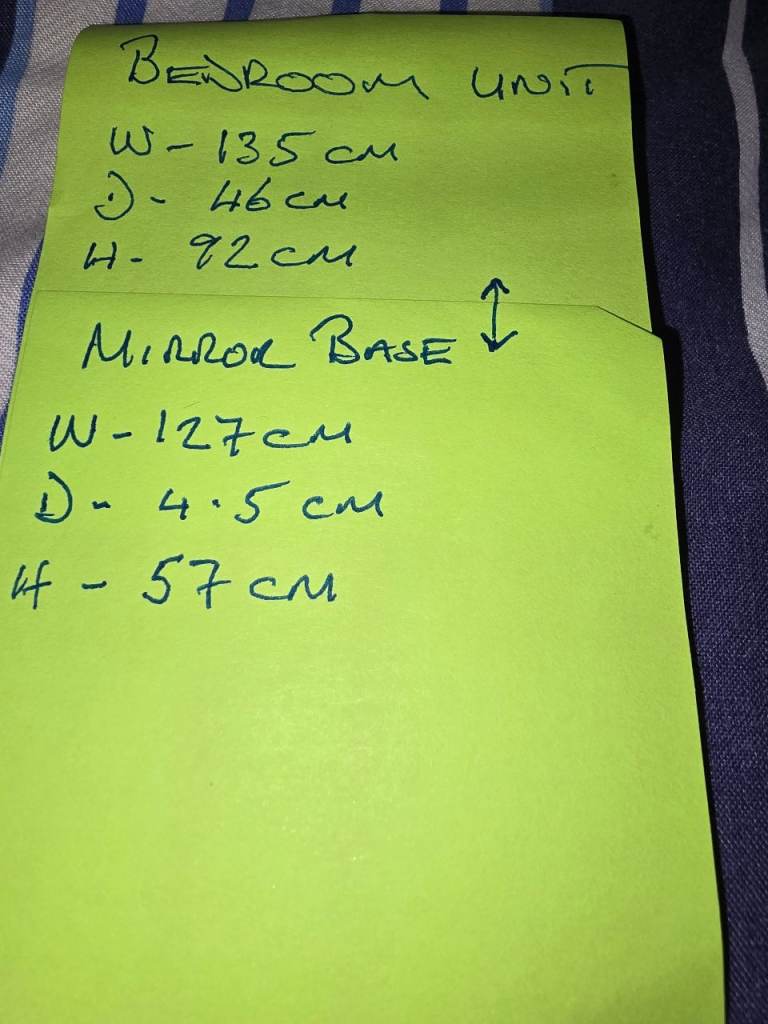 BEDROOM UNIT
W - 135 CM
D - 46 CM
H - 92 CM
MIRROR BASE ↕
W - 127 CM
D - 4.5 CM
H - 57 CM